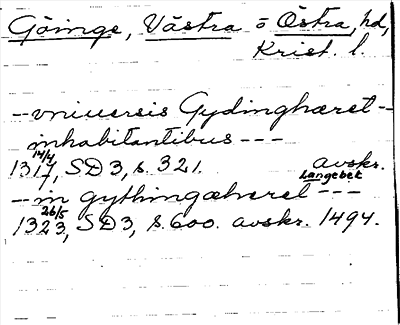 Göinge, Västra o Östra, hd,
Krist. l.
-- vniuersis Gydinghæret --
inhabitantibus ---
1317 14/4, SD 3, s. 321. avskr. Langebek
-- in gythingæhæret ---
1323 26/5, SD 3, s. 600. avskr. 1494.